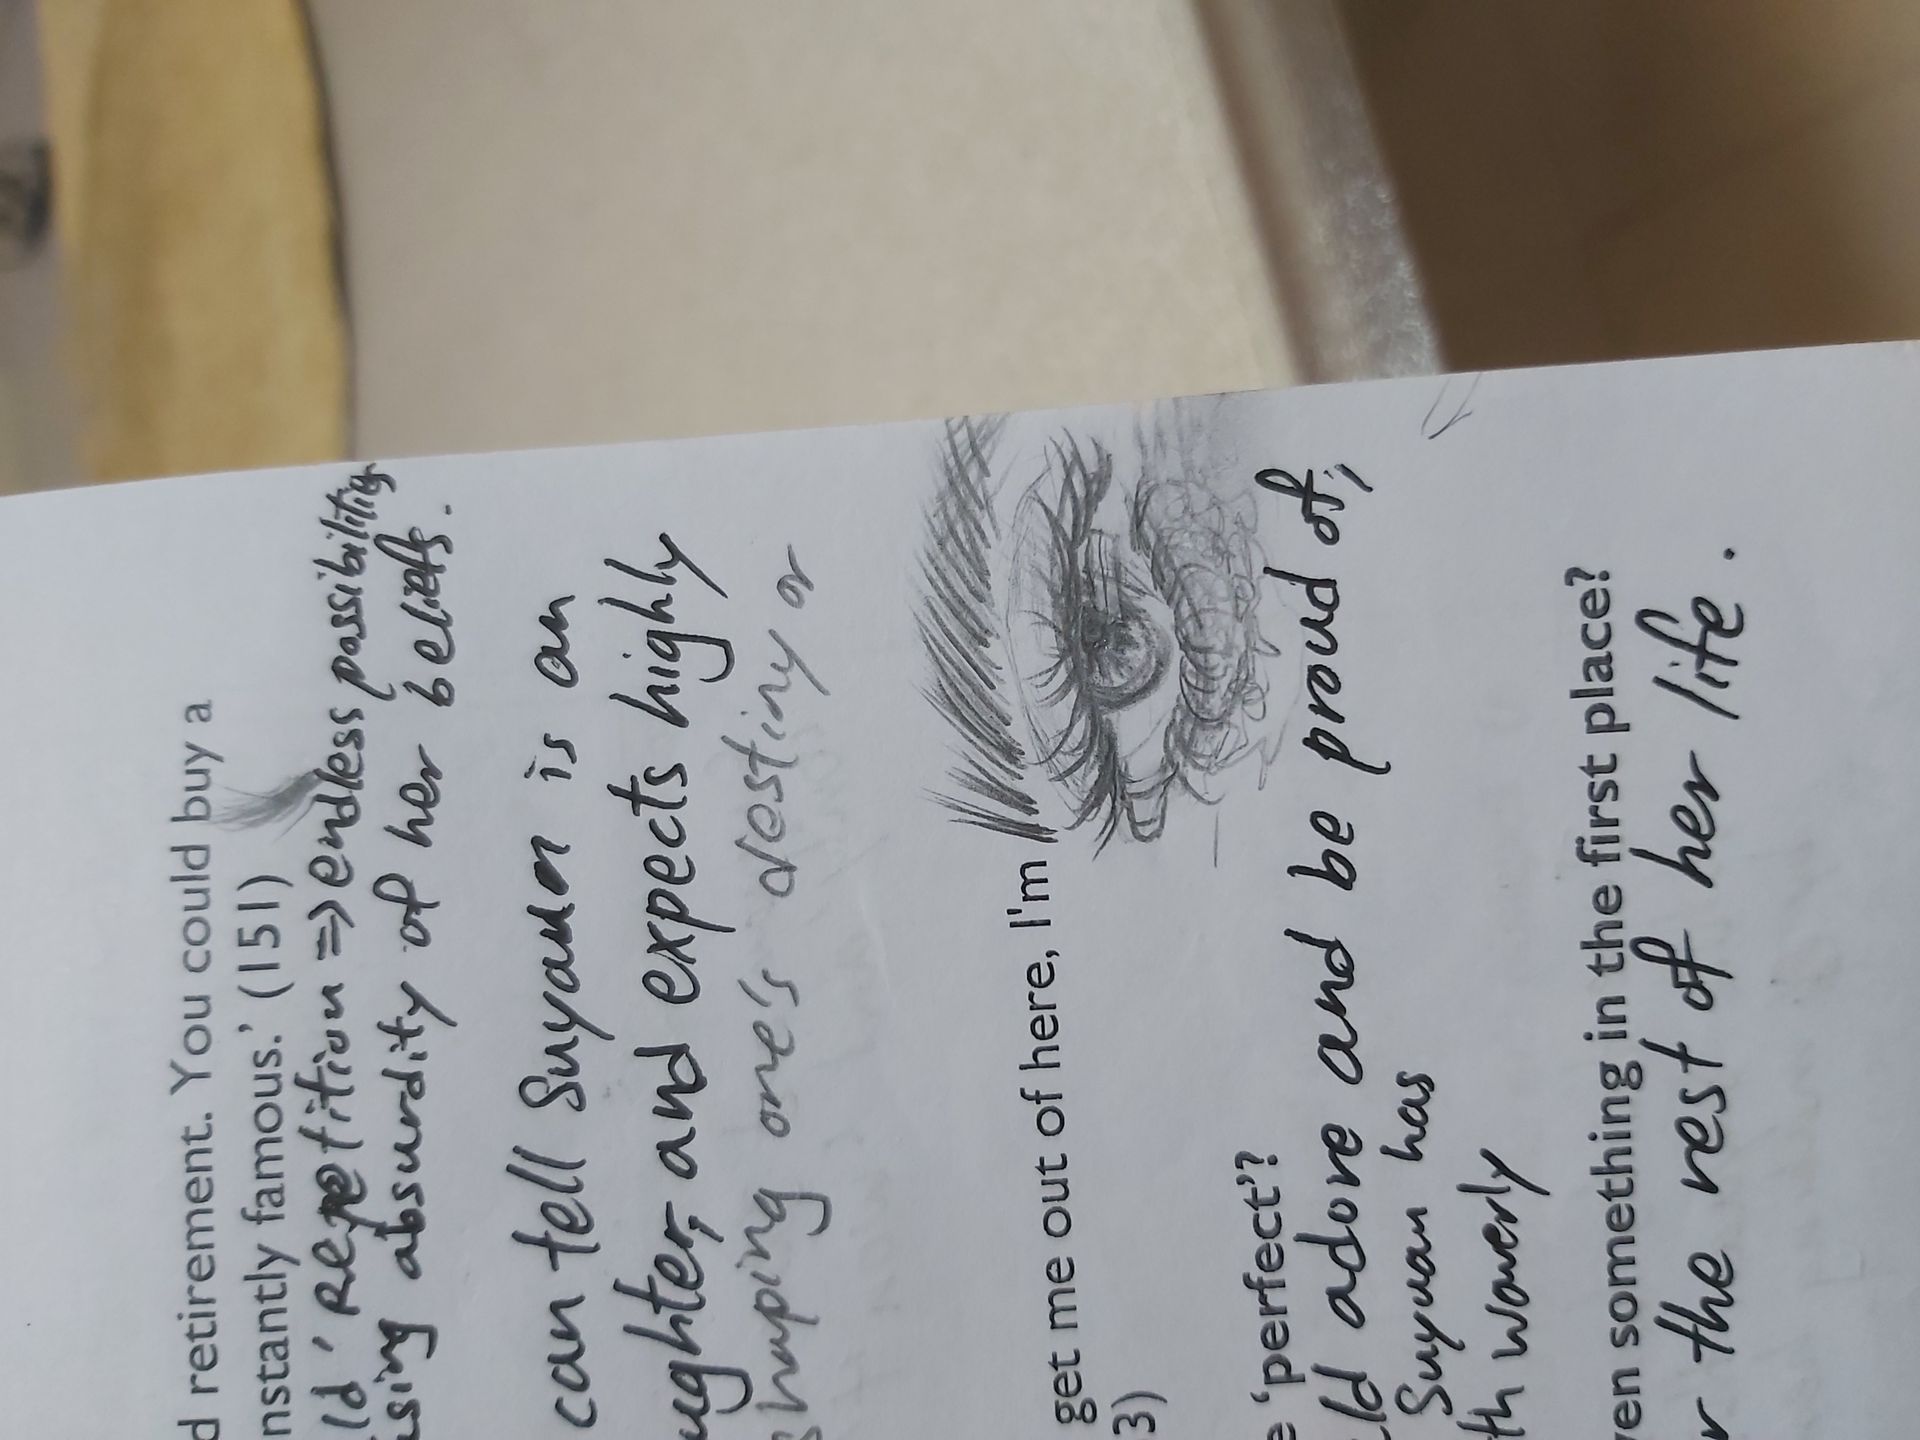 d retirement. You could buy a
nstantly famous.' (151)
ld' repetition => endless possibilities
using absurdity of her beliefs.
can tell Suyuan is an
ughter, and expects highly
shaping one's destiny or
get me out of here, I'm
3)
e 'perfect'?
ld adore and be proud of,
Suyuan has
th waverly
ven something in the first place?
r the rest of her life.